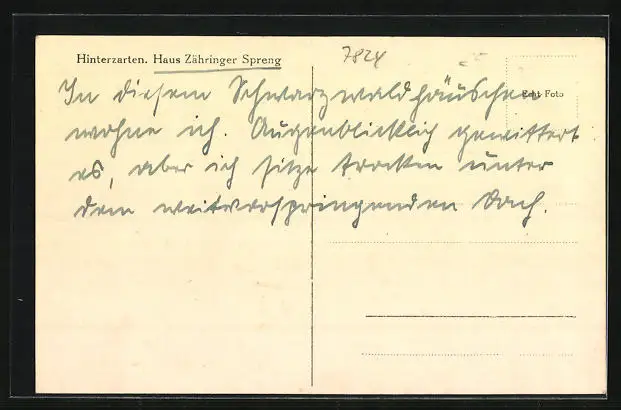 Hinterzarten. Haus Zähringer Spreng
7824
Echt Foto
In diesem Schwarzwaldhäuschen
wohne ich. Augenblicklich gewittert
es, aber ich sitze trocken unter
dem weitvorspringenden Dach.